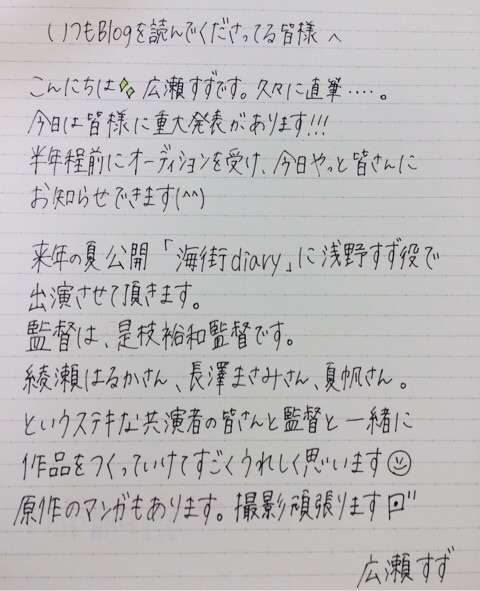 いつもBlogを読んでくださってる皆様へ
こんにちは 広瀬すずです。久々に直筆・・・・。
今日は皆様に重大発表があります!!!
半年程前にオーディションを受け、今日やっと皆さんに
お知らせできます(^^)
来年の夏公開「海街diary」に浅野すず役で
出演させて頂きます。
監督は、是枝裕和監督です。
綾瀬はるかさん、長澤まさみさん、夏帆さん。
というステキな共演者の皆さんと監督と一緒に
作品をつくっていけてすごくうれしく思います☺
原作のマンガもあります。撮影頑張ります
広瀬すず